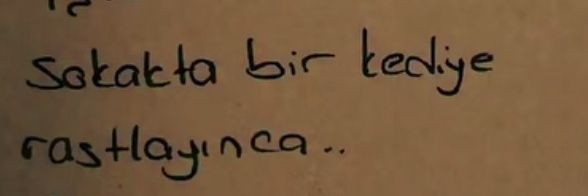 Sokakta bir kediye
rastlayınca..